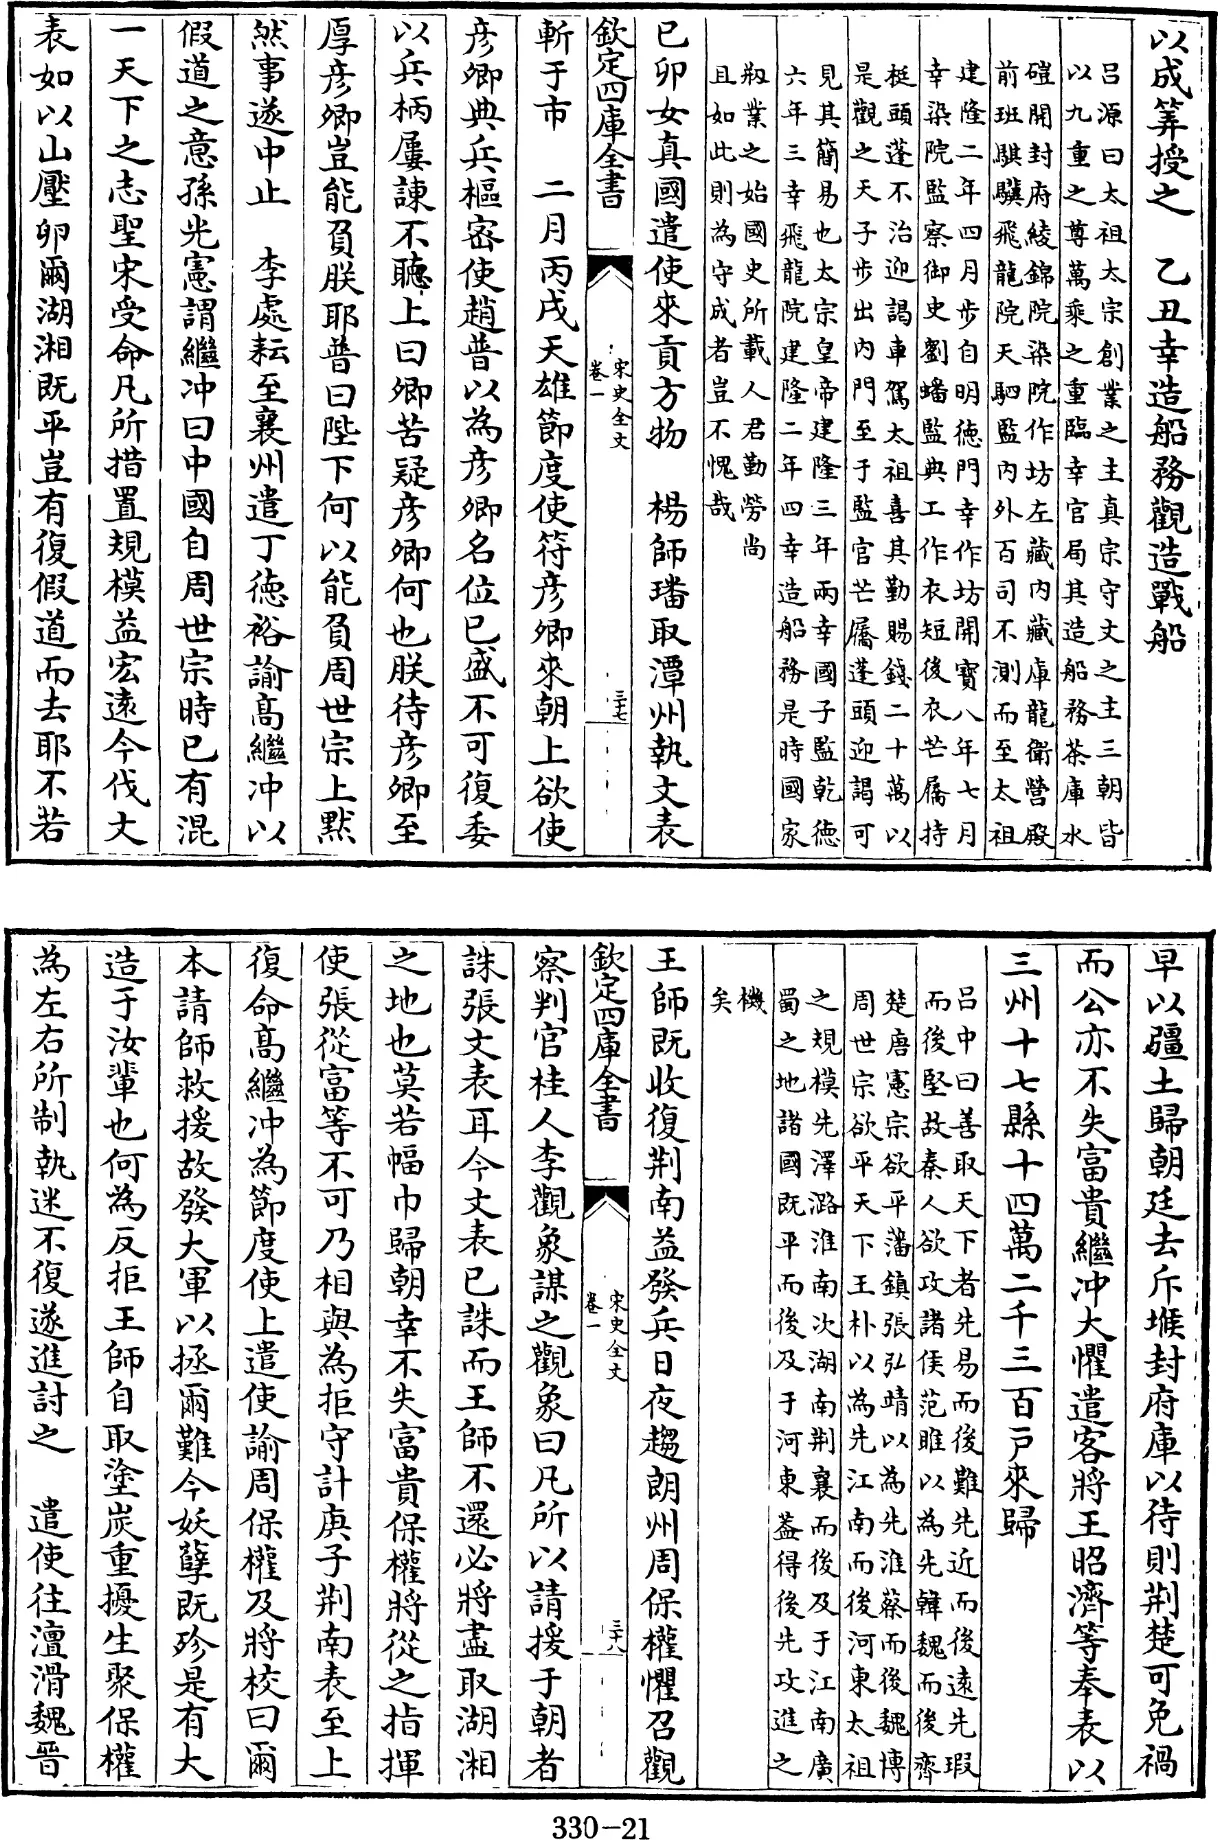 以成筭授之　乙丑幸造船務觀造戰船
吕源曰太祖太宗創業之主真宗守文之主三朝皆
以九重之尊萬乘之重臨幸官局其造船務茶庫水
磑開封府綾錦院染院作坊左藏内藏庫龍衛營殿
前班騏驥飛龍院天駟監内外百司不測而至太祖
建隆二年四月步自明德門幸作坊開寳八年七月
幸染院監察御史劉蟠監典工作衣短後衣芒屩持
梃頭蓬不治迎謁車駕太祖喜其勤賜錢二十萬以
是觀之天子步出内門至于監官芒屩蓬頭迎謁可
見其簡易也太宗皇帝建隆三年兩幸國子監乾德
六年三幸飛龍院建隆二年四幸造船務是時國家
剏業之始國史所載人君勤勞尚
且如此則為守成者豈不愧哉
已卯女真國遣使來貢方物　楊師璠取潭州執文表
欽定四庫全書
宋史全文
卷一
三十七
斬于市　二月丙戌天雄節度使符彦卿來朝上欲使
彦卿典兵樞宻使趙普以為彦卿名位已盛不可復委
以兵柄屢諫不聽上曰卿苦疑彦卿何也朕待彦卿至
厚彦卿豈能負朕耶普曰陛下何以能負周世宗上黙
然事遂中止　李處耘至襄州遣丁德裕諭髙繼冲以
假道之意孫光憲謂繼冲曰中國自周世宗時已有混
一天下之志聖宋受命凡所措置規模益宏遠今伐文
表如以山壓卵爾湖湘既平豈有復假道而去耶不若
早以疆土歸朝廷去斥堠封府庫以待則荆楚可免禍
而公亦不失富貴繼冲大懼遣客將王昭濟等奉表以
三州十七縣十四萬二千三百戸來歸
吕中曰善取天下者先易而後難先近而後逺先瑕
而後堅故秦人欲攻諸侯范雎以為先韓魏而後齊
楚唐憲宗欲平藩鎮張弘靖以為先淮蔡而後魏博
周世宗欲平天下王朴以為先江南而後河東太祖
之規模先澤潞淮南次湖南荆襄而後及于江南廣
蜀之地諸國既平而後及于河東葢得後先攻進之
機
矣
王師既收復荆南益發兵日夜趨朗州周保權懼召觀
欽定四庫全書
宋史全文
卷一
三十八
察判官桂人李觀象謀之觀象曰凡所以請援于朝者
誅張文表耳今文表已誅而王師不還必將盡取湖湘
之地也莫若幅巾歸朝幸不失富貴保權將從之指揮
使張從富等不可乃相與為拒守計庚子荆南表至上
復命髙繼冲為節度使上遣使諭周保權及將校曰爾
本請師救援故發大軍以拯爾難今妖孽既殄是有大
造于汝輩也何為反拒王師自取塗炭重擾生聚保權
為左右所制執迷不復遂進討之　遣使往澶滑魏晋
330-21